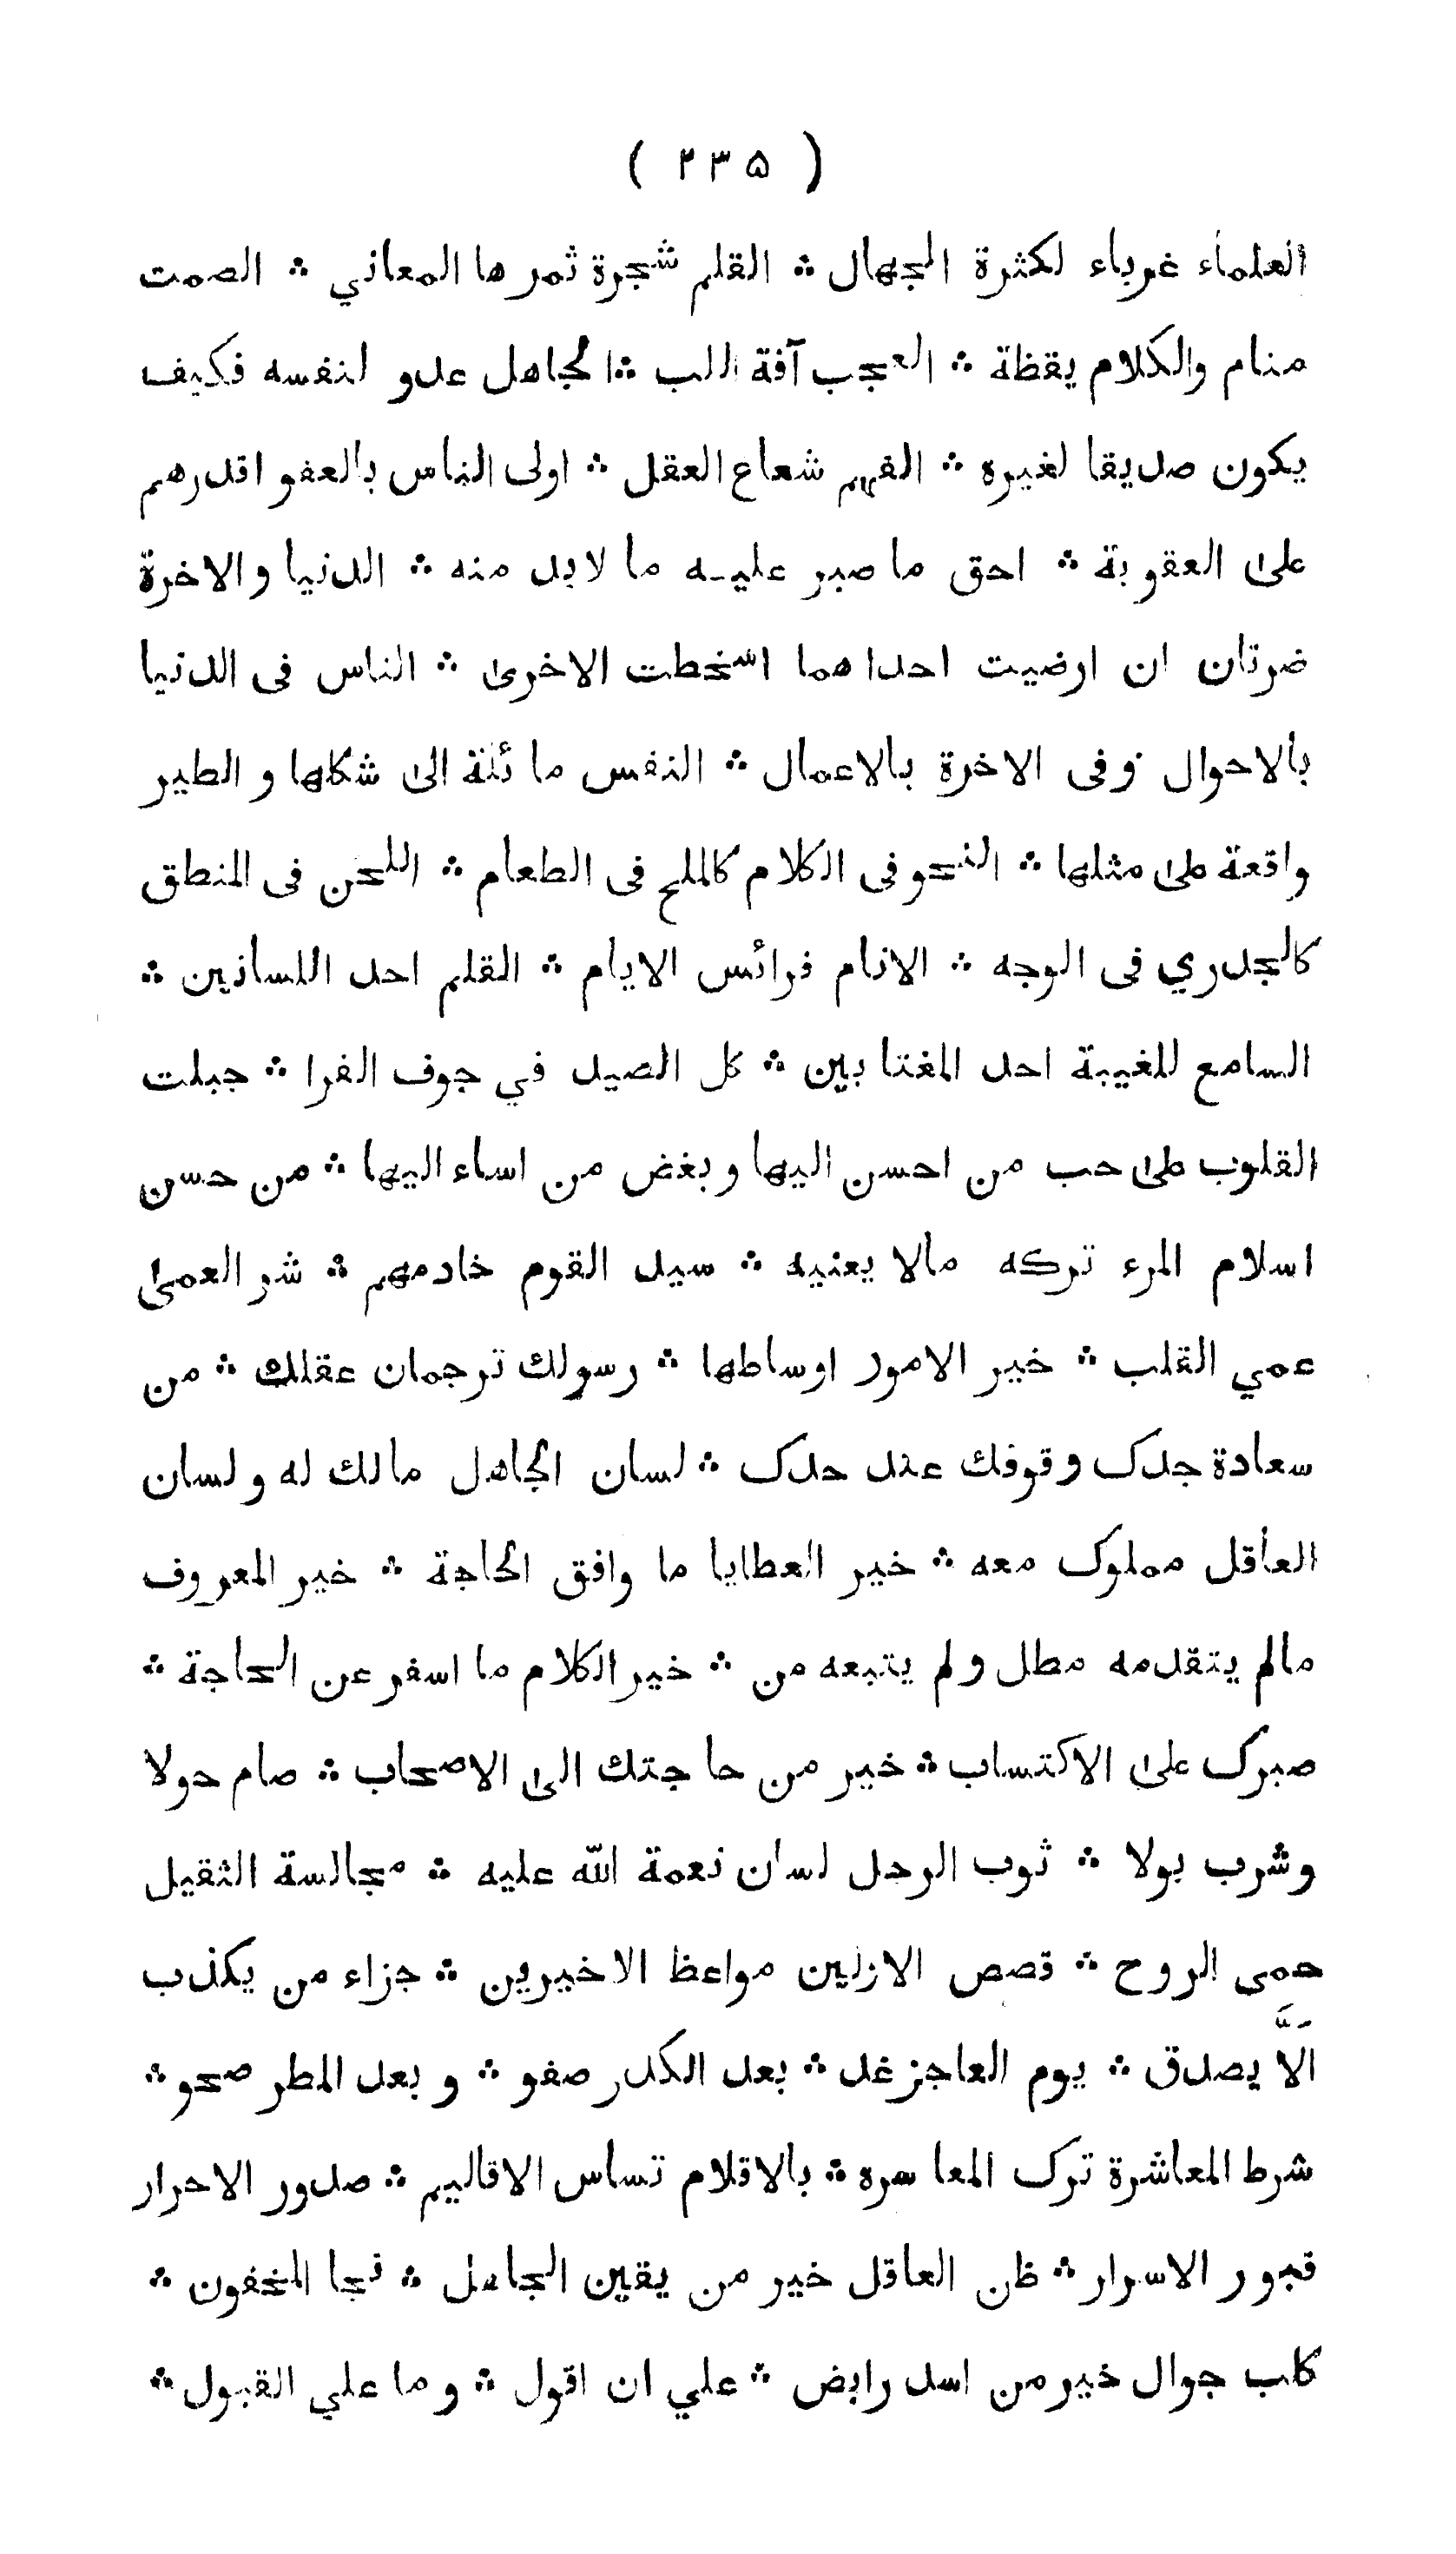 ( ٢٣٥ )
العلماء غرباء لكثرة الجهال ⁂ القلم شجرة ثمرها المعاني ⁂ الصمت
منام والكلام يقظة ⁂ العجب آفة اللب ⁂ الجاهل عدو لنفسه فكيف
يكون صديقا لغيره ⁂ الفهم شعاع العقل ⁂ اولى الناس بالعفو اقدرهم
على العقوبة ⁂ احق ما صبر عليه ما لابد منه ⁂ الدنيا والاخرة
ضرتان ان ارضيت احداهما اسخطت الاخرى ⁂ الناس فى الدنيا
بالاحوال وفى الاخرة بالاعمال ⁂ النفس مائلة الى شكلها و الطير
واقعة على مثلها ⁂ النحو فى الكلام كالملح فى الطعام ⁂ اللحن فى المنطق
كالجدري فى الوجه ⁂ الانام فرائس الايام ⁂ القلم احد اللسانين ⁂
السامع للغيبة احد المغتابين ⁂ كل الصيد في جوف الفرا ⁂ جبلت
القلوب على حب من احسن اليها وبغض من اساء اليها ⁂ من حسن
اسلام المرء تركه مالا يعنيه ⁂ سيد القوم خادمهم ⁂ شر العمى
عمي القلب ⁂ خير الامور اوساطها ⁂ رسولك ترجمان عقلك ⁂ من
سعادة جدك وقوفك عند حدك ⁂ لسان الجاهل مالك له ولسان
العاقل مملوك معه ⁂ خير العطايا ما وافق الحاجة ⁂ خير المعروف
مالم يتقدمه مطل ولم يتبعه من ⁂ خير الكلام ما اسفر عن الحاجة ⁂
صبرك على الاكتساب ⁂ خير من حاجتك الى الاصحاب ⁂ صام حولا
وشرب بولا ⁂ ثوب الرجل لسان نعمة الله عليه ⁂ مجالسة الثقيل
حمى الروح ⁂ قصص الاولين مواعظ الاخيرين ⁂ جزاء من يكذب
الَّا يصدق ⁂ يوم العاجز غد ⁂ بعد الكدر صفو ⁂ وبعد المطر صحو ⁂
شرط المعاشرة ترك المعاسره ⁂ بالاقلام تساس الاقاليم ⁂ صدور الاحرار
قبور الاسرار ⁂ ظن العاقل خير من يقين الجاهل ⁂ نجا المخفون ⁂
كلب جوال خير من اسد رابض ⁂ علي ان اقول ⁂ وما علي القبول ⁂